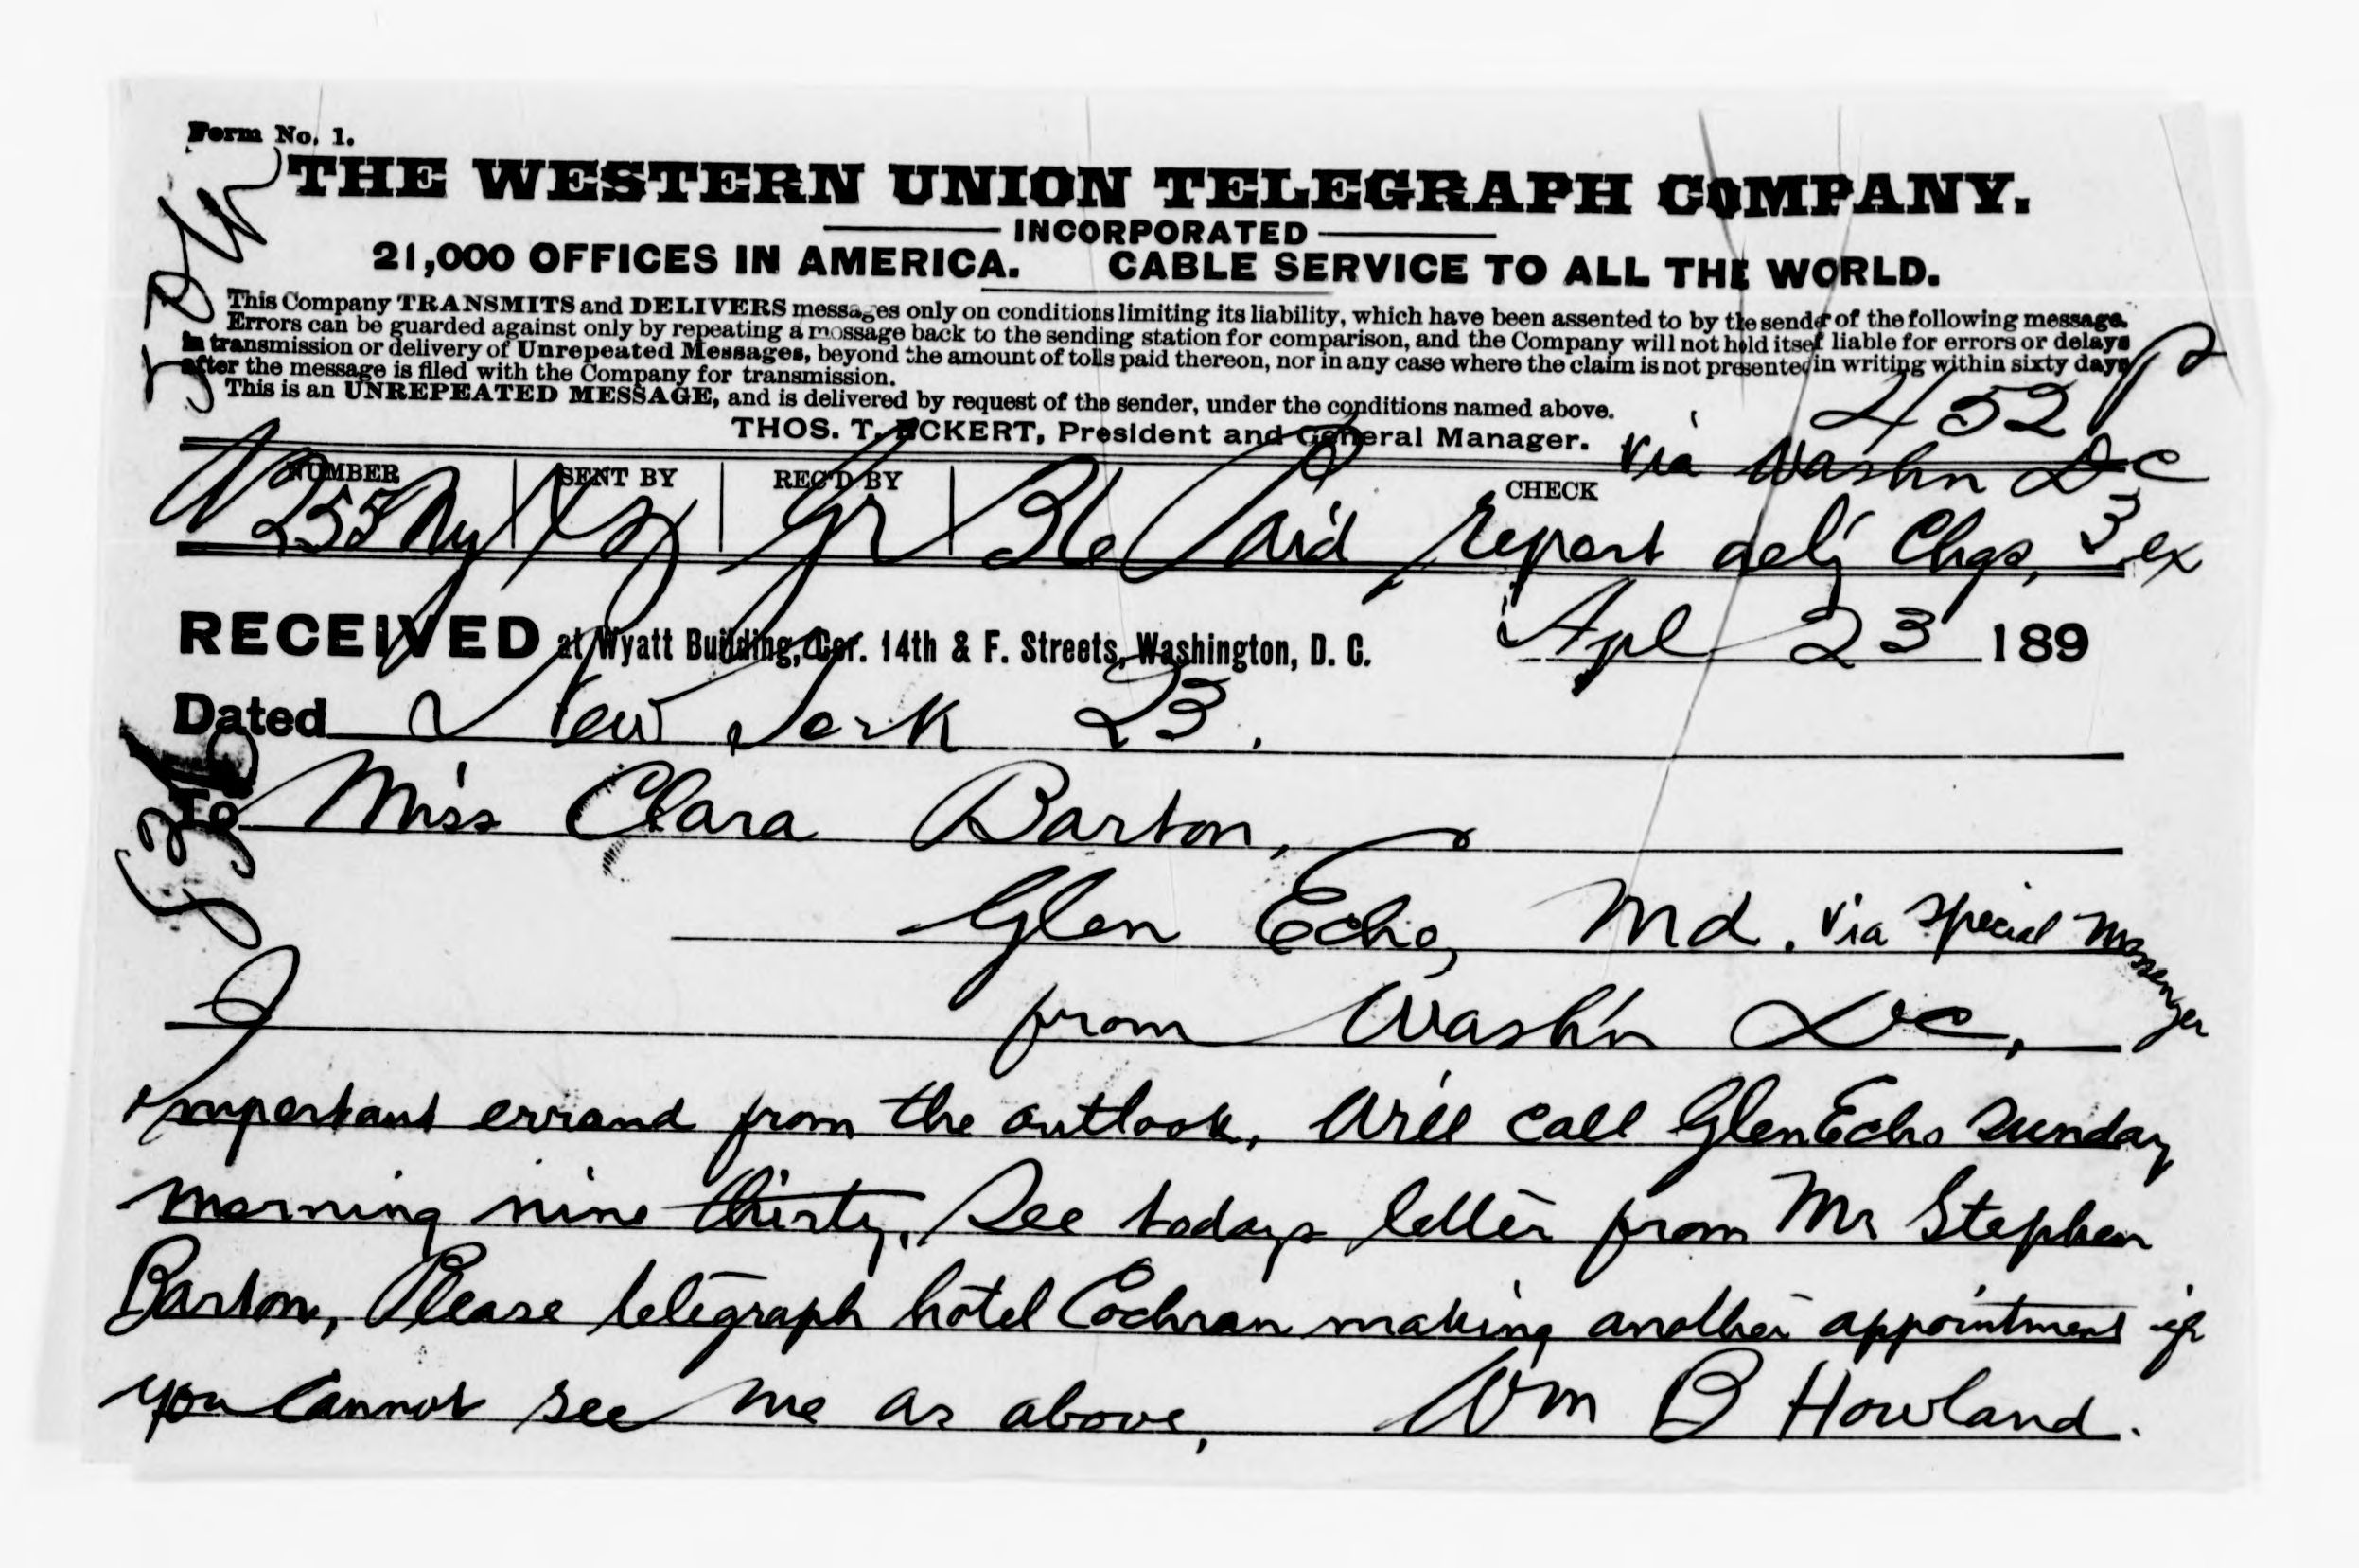 Form No. 1.
THE WESTERN UNION TELEGRAPH COMPANY.
INCORPORATED
21,000 OFFICES IN AMERICA. CABLE SERVICE TO ALL THE WORLD.
This Company TRANSMITS and DELIVERS messages only on conditions limiting its liability, which have been assented to by the sender of the following message.
Errors can be guarded against only by repeating a message back to the sending station for comparison, and the Company will not hold itself liable for errors or delays
in transmission or delivery of Unrepeated Messages, beyond the amount of tolls paid thereon, nor in any case where the claim is not presented in writing within sixty days
after the message is filed with the Company for transmission.
This is an UNREPEATED MESSAGE, and is delivered by request of the sender, under the conditions named above.
THOS. T. ECKERT, President and General Manager.
452 P
via Washn DC
NUMBER SENT BY REC'D BY CHECK
255 Ny 36 Paid report delj Chgs, 3 ex
RECEIVED at Wyatt Building, Cor. 14th & F. Streets, Washington, D. C. Apl 23 189
Dated New York 23.
To Miss Clara Barton,
Glen Echo, Md. via special Messenger
from Wash'n DC,
Important errand from the outlook, Will call Glen Echo Sunday
morning nine thirty, See todays letter from Mr Stephen
Barton, Please telegraph hotel Cochran making another appointment if
you cannot see me as above, Wm B Howland.